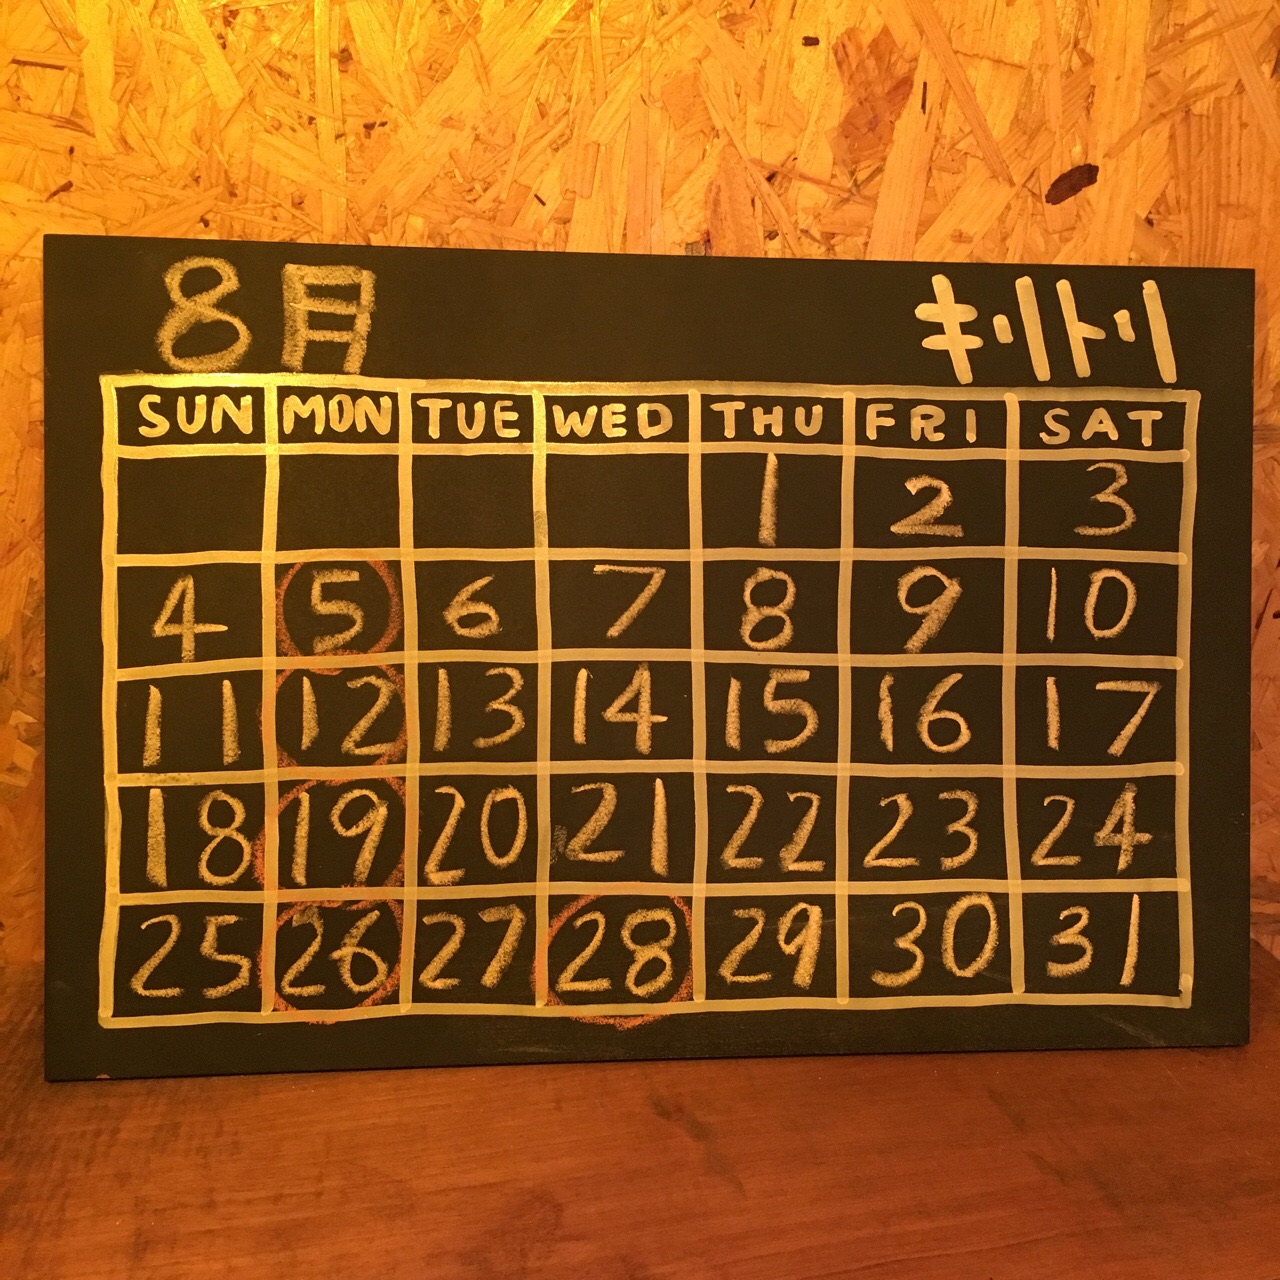 8月 キリトリ
SUN MON TUE WED THU FRI SAT
1 2 3
4 5 6 7 8 9 10
11 12 13 14 15 16 17
18 19 20 21 22 23 24
25 26 27 28 29 30 31